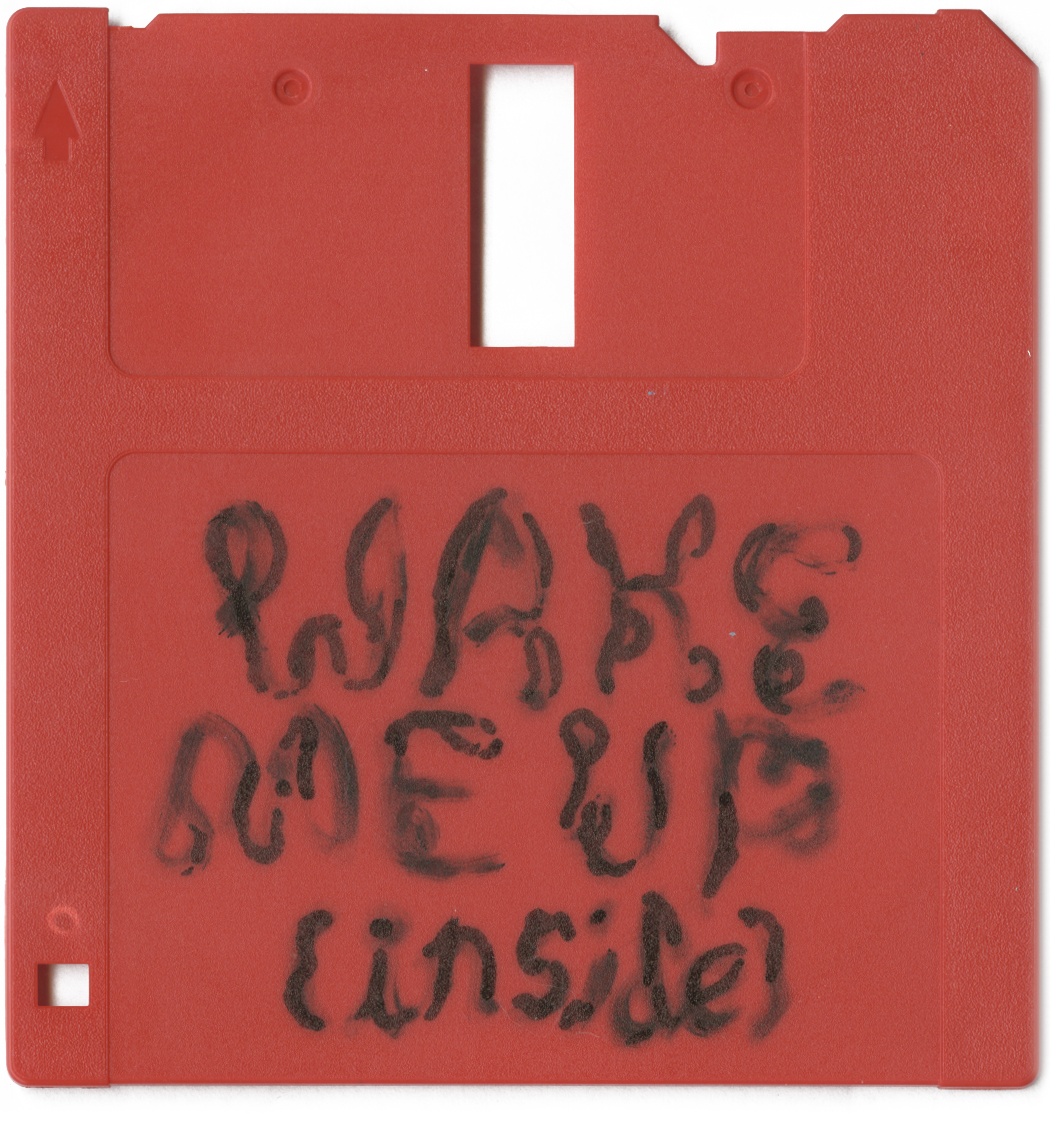 WAKE
ME UP
(inside)